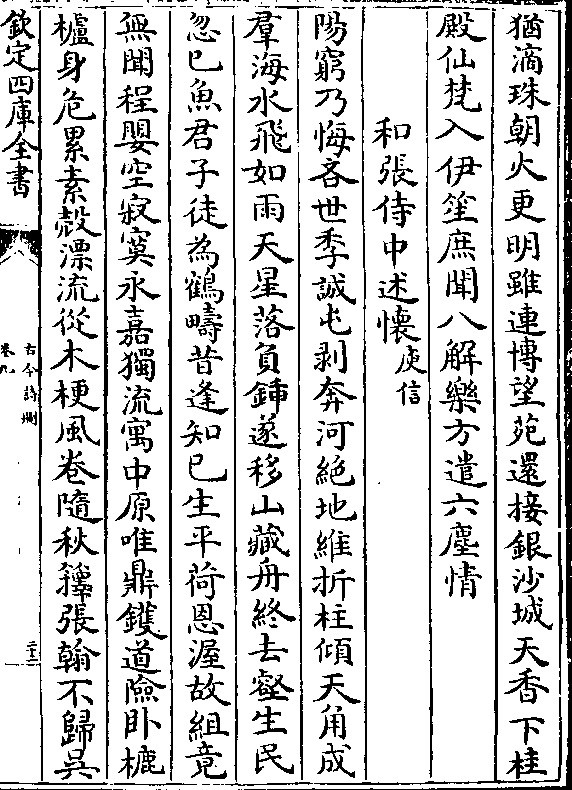 猶滴珠朝火更明雖連博望苑還接銀沙城天香下桂
殿仙梵入伊笙庶聞八解樂方遣六塵情
和張侍中述懷庾信
陽窮乃悔吝世季誠屯剥奔河絶地維折柱傾天角成
羣海水飛如雨天星落負鍤遂移山藏舟終去壑生民
忽已魚君子徒為鶴疇昔逢知己生平荷恩渥故組竟
無聞程嬰空寂寞永嘉獨流寓中原唯鼎鑊道險卧櫖
櫨身危累素殻漂流從木梗風卷隨秋籜張翰不歸吳
欽定四庫全書
古今詩刪
卷九
二十二